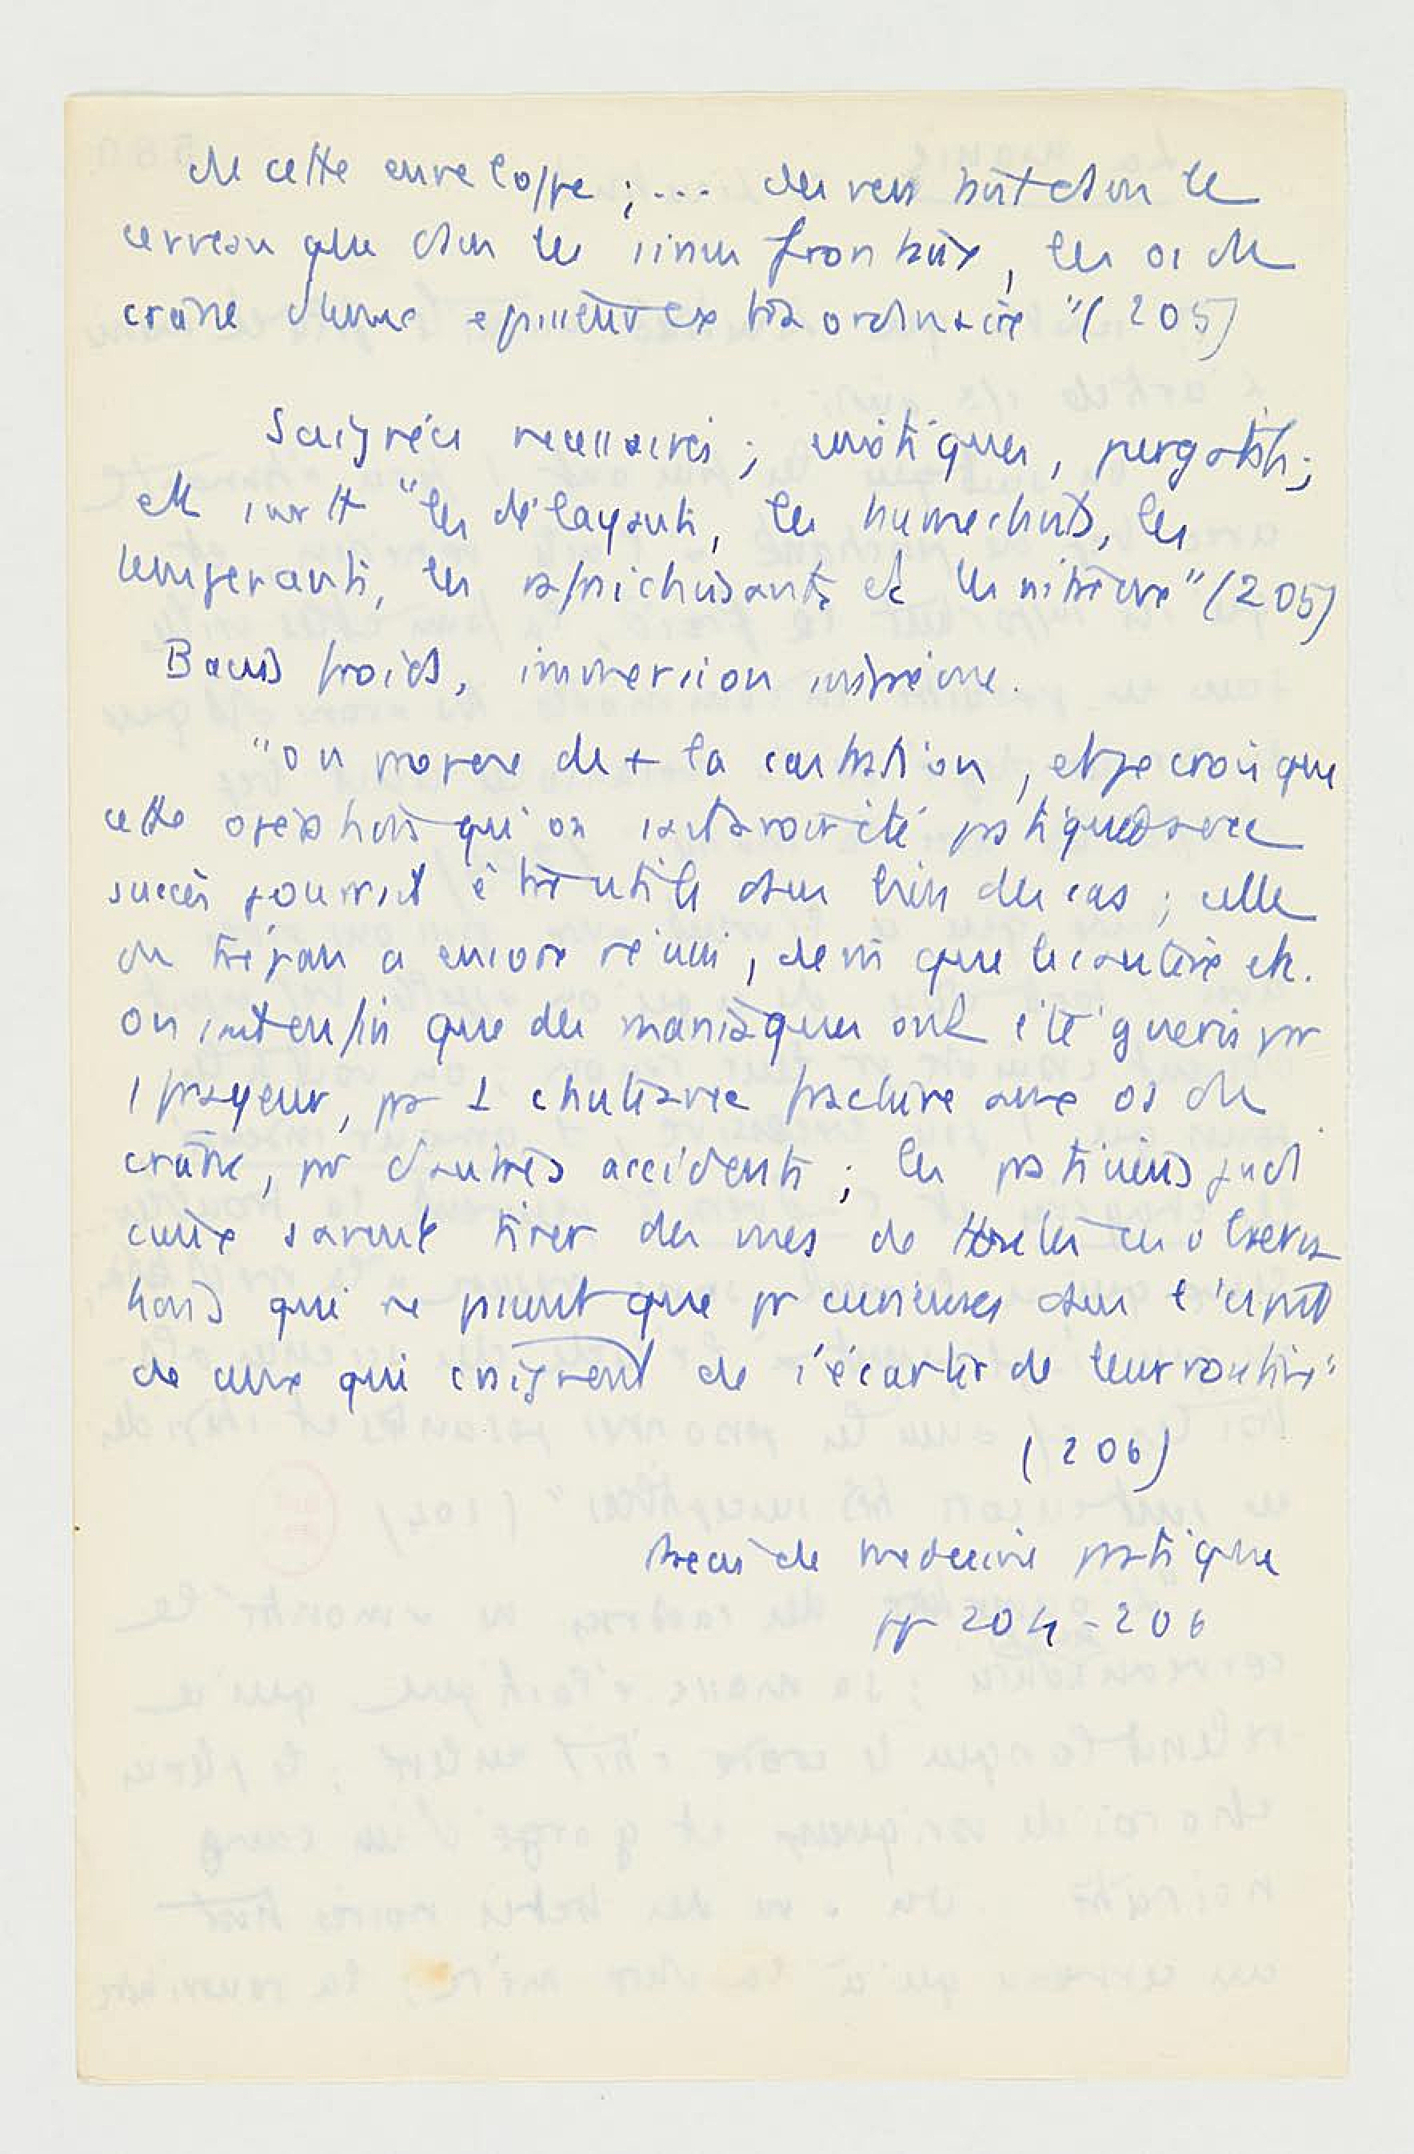 de cette enveloppe ; ... des vers tant dans le
cerveau que dans les sinus frontaux, les os du
crâne d'une épaisseur extraordinaire" (205)
Saignées nécessaires ; émétiques, purgatifs ;
et surtt "les délayants, les humectants, les
tempérants, les rafraichissants et les nitreux" (205)
Bains froids, immersion
"On propose de + la castration, et je crois que
cette opération qu'on sait avoir été pratiquée avec
succès pourrait être utile dans bien des cas ; celle
du trépan a encore réussi, de m que le cautère etc.
On sait enfin que des maniaques ont été guéris par
1 frayeur, par 1 chute avec fracture aux os du
crâne, par d'autres accidents ; les praticiens judi
cieux savent tirer des vues de ttes les observa
tions qui ne passent que pr curieuses dans l'esprit
de ceux qui craignent de s'écarter de leur routine"
(206)
Précis de médecine pratique
pp 204-206